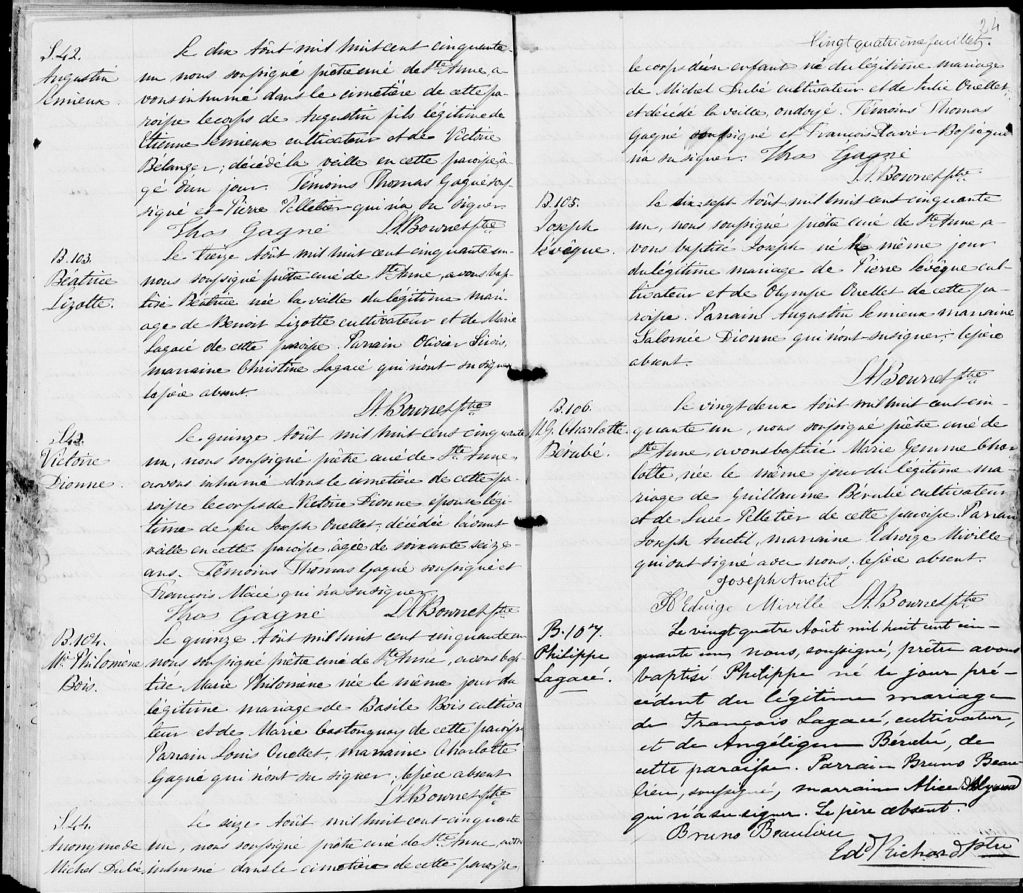 S. 42.
Augustin
Lemieux.
Le dix Août mil huit cent cinquante
un nous soussigné prêtre curé de Ste Anne, a
vons inhumé dans le cimetière de cette pa
roisse le corps de Augustin fils légitime de
Etienne Lemieux cultivateur et de Victoire
Belanger; décédé la veille en cette paroisse â
gé d'un jour. Témoins Thomas Gagné sous
signé et Pierre Pelletier qui n'a su signer.
Thos Gagné L.A. Bourret ptre
B. 103.
Béatrice
Lizotte.
Le treize Août mil huit cent cinquante un
nous soussigné prêtre curé de Ste Anne, avons bap
tisé Béatrice née la veille du légitime mari
age de Benoit Lizotte cultivateur et de Marie
Lagacé de cette paroisse. Parrain Olivier Sirois,
marraine Christine Lagacé qui n'ont su signer
le père absent.
L.A. Bourret ptre
S. 43.
Victoire
Dionne.
Le quinze Août mil huit cent cinquante
un, nous soussigné prêtre curé de Ste Anne
avons inhumé dans le cimetière de cette pa
roisse le corps de Victoire Dionne épouse légi
time de feu Joseph Ouellet; décédée l'avant
veille en cette paroisse âgée de soixante seize
ans. Témoins Thomas Gagné soussigné et
François Macé qui n'a su signer
Thos Gagné L.A. Bourret ptre
B. 104.
Mie Philomène
Bois.
Le quinze Août mil huit cent cinquante un
nous soussigné prêtre curé de Ste Anne, avons bap
tisé Marie Philomène née le même jour du
légitime mariage de Basile Bois cultiva
teur et de Marie Castonguay de cette paroisse
Parrain Louis Ouellet, marraine Charlotte
Gagné qui n'ont su signer; le père absent
L.A. Bourret ptre
S. 44.
Anonyme de
Michel Dubé
Le seize Août mil huit cent cinquante
un, nous soussigné prêtre curé de Ste Anne, avons
inhumé dans le cimetière de cette paroisse
24
Vingt quatrième feuillet.
le corps d'un enfant né du légitime mariage
de Michel Dubé cultivateur et de Julie Ouellet,
et décédé la veille, ondoyé. Témoins Thomas
Gagné soussigné et François Xavier
n'a su signer. Thos Gagné
L.A. Bourret ptre
B. 105.
Joseph
Lévêque.
Le dix sept Août mil huit cent cinquante
un, nous soussigné prêtre curé de Ste Anne a
vons baptisé Joseph né le même jour
du légitime mariage de Pierre Lévêque cul
tivateur et de Olympe Ouellet de cette pa
roisse. Parrain Augustin Lemieux marraine
Salomée Dionne qui n'ont su signer. le père
absent.
L.A. Bourret ptre
B. 106.
M. G. Charlotte
Bérubé.
Le vingt deux Août mil huit cent cin
quante un, nous soussigné prêtre curé de
Ste Anne, avons baptisé Marie Gemme Char
lotte, née le même jour du légitime ma
riage de Guillaume Bérubé cultivateur
et de Luce Pelletier de cette paroisse Parrain
Joseph Anctil, marraine Edwige Miville
qui ont signé avec nous. le père absent.
Joseph Anctil
Edwige Miville L.A. Bourret ptre
B. 107.
Philippe
Lagacé.
Le vingt quatre Août mil huit cent cin-
quante un, nous, soussigné, prêtre avons
baptisé Philippe né le jour pré-
cédent du légitime mariage
de François Lagacé, cultivateur,
et de Angélique Bérubé, de
cette paroisse. Parrain Bruno Beau-
lieu, soussigné, marraine Alice
qui n'a su signer. Le père absent.
Bruno Beaulieu
Edd Richard Ptre